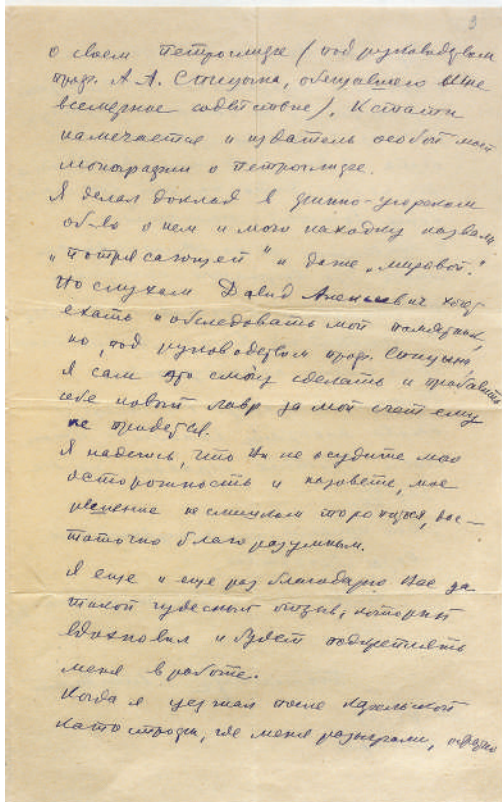 3
о своем петроглифе (под руководством
проф. А. А. Спицына, обещавшего мне
всемерное содействие). Кстати
намечается и издатель особой моей
монографии о петроглифе.
Я делал доклад в финно-угорском
об-ве о нем и мою находку назвали
„потрясающей" и даже „мировой".
По слухам Давид Ананьевич хочет
ехать и обследовать мой памятник,
но, под руководством проф. Спицына
я сам это смогу сделать и прибавить
себе новый лавр за мой счет ему
не придется.
Я надеюсь, что Вы не осудите мою
осторожность и назовете, мое
решение не слишком торопиться, дос-
таточно благоразумным.
Я еще и еще раз благодарю Вас за
такой чудесный отзыв, который
вдохновил и будет подкреплять
меня в работе.
Когда я уезжал после Карельской
катастрофы, где меня разыграли,